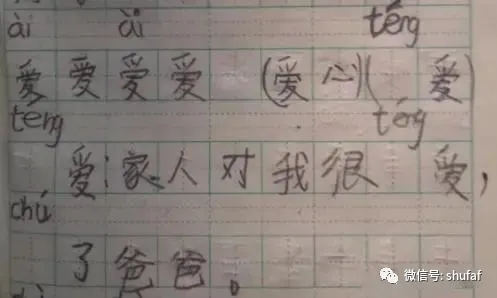 ài ài téng
爱 爱 爱 爱 (爱 心)( 爱)
teng téng
爱:家人对我很 爱,
chú
了爸爸。
微信号: shufaf